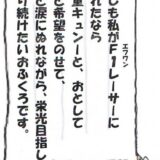 しも私がF1レーサーに
エフワン
れたなら
重キューンと、おとして
と希望をのせて、
と涙にぬれながら、栄光目指し
り続けたいおふくろです。